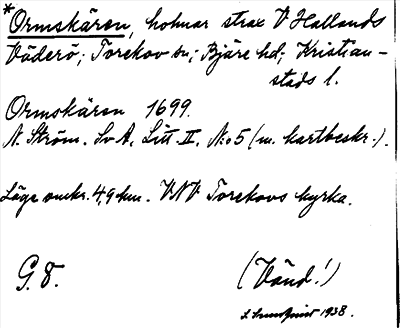 *Ormskären, holmar strax V Hallands
Väderö; Torekov sn; Bjäre hd; Kristian-
stads l.
Ormskären 1699.
N. Ström. Sv. A. Litt. II. N:o 5 (m. kartbeskr.).
Läge omkr. 4,9 km. VNV Torekovs kyrka.
G. T.
(Vänd!)
S. Lundquist 1938.